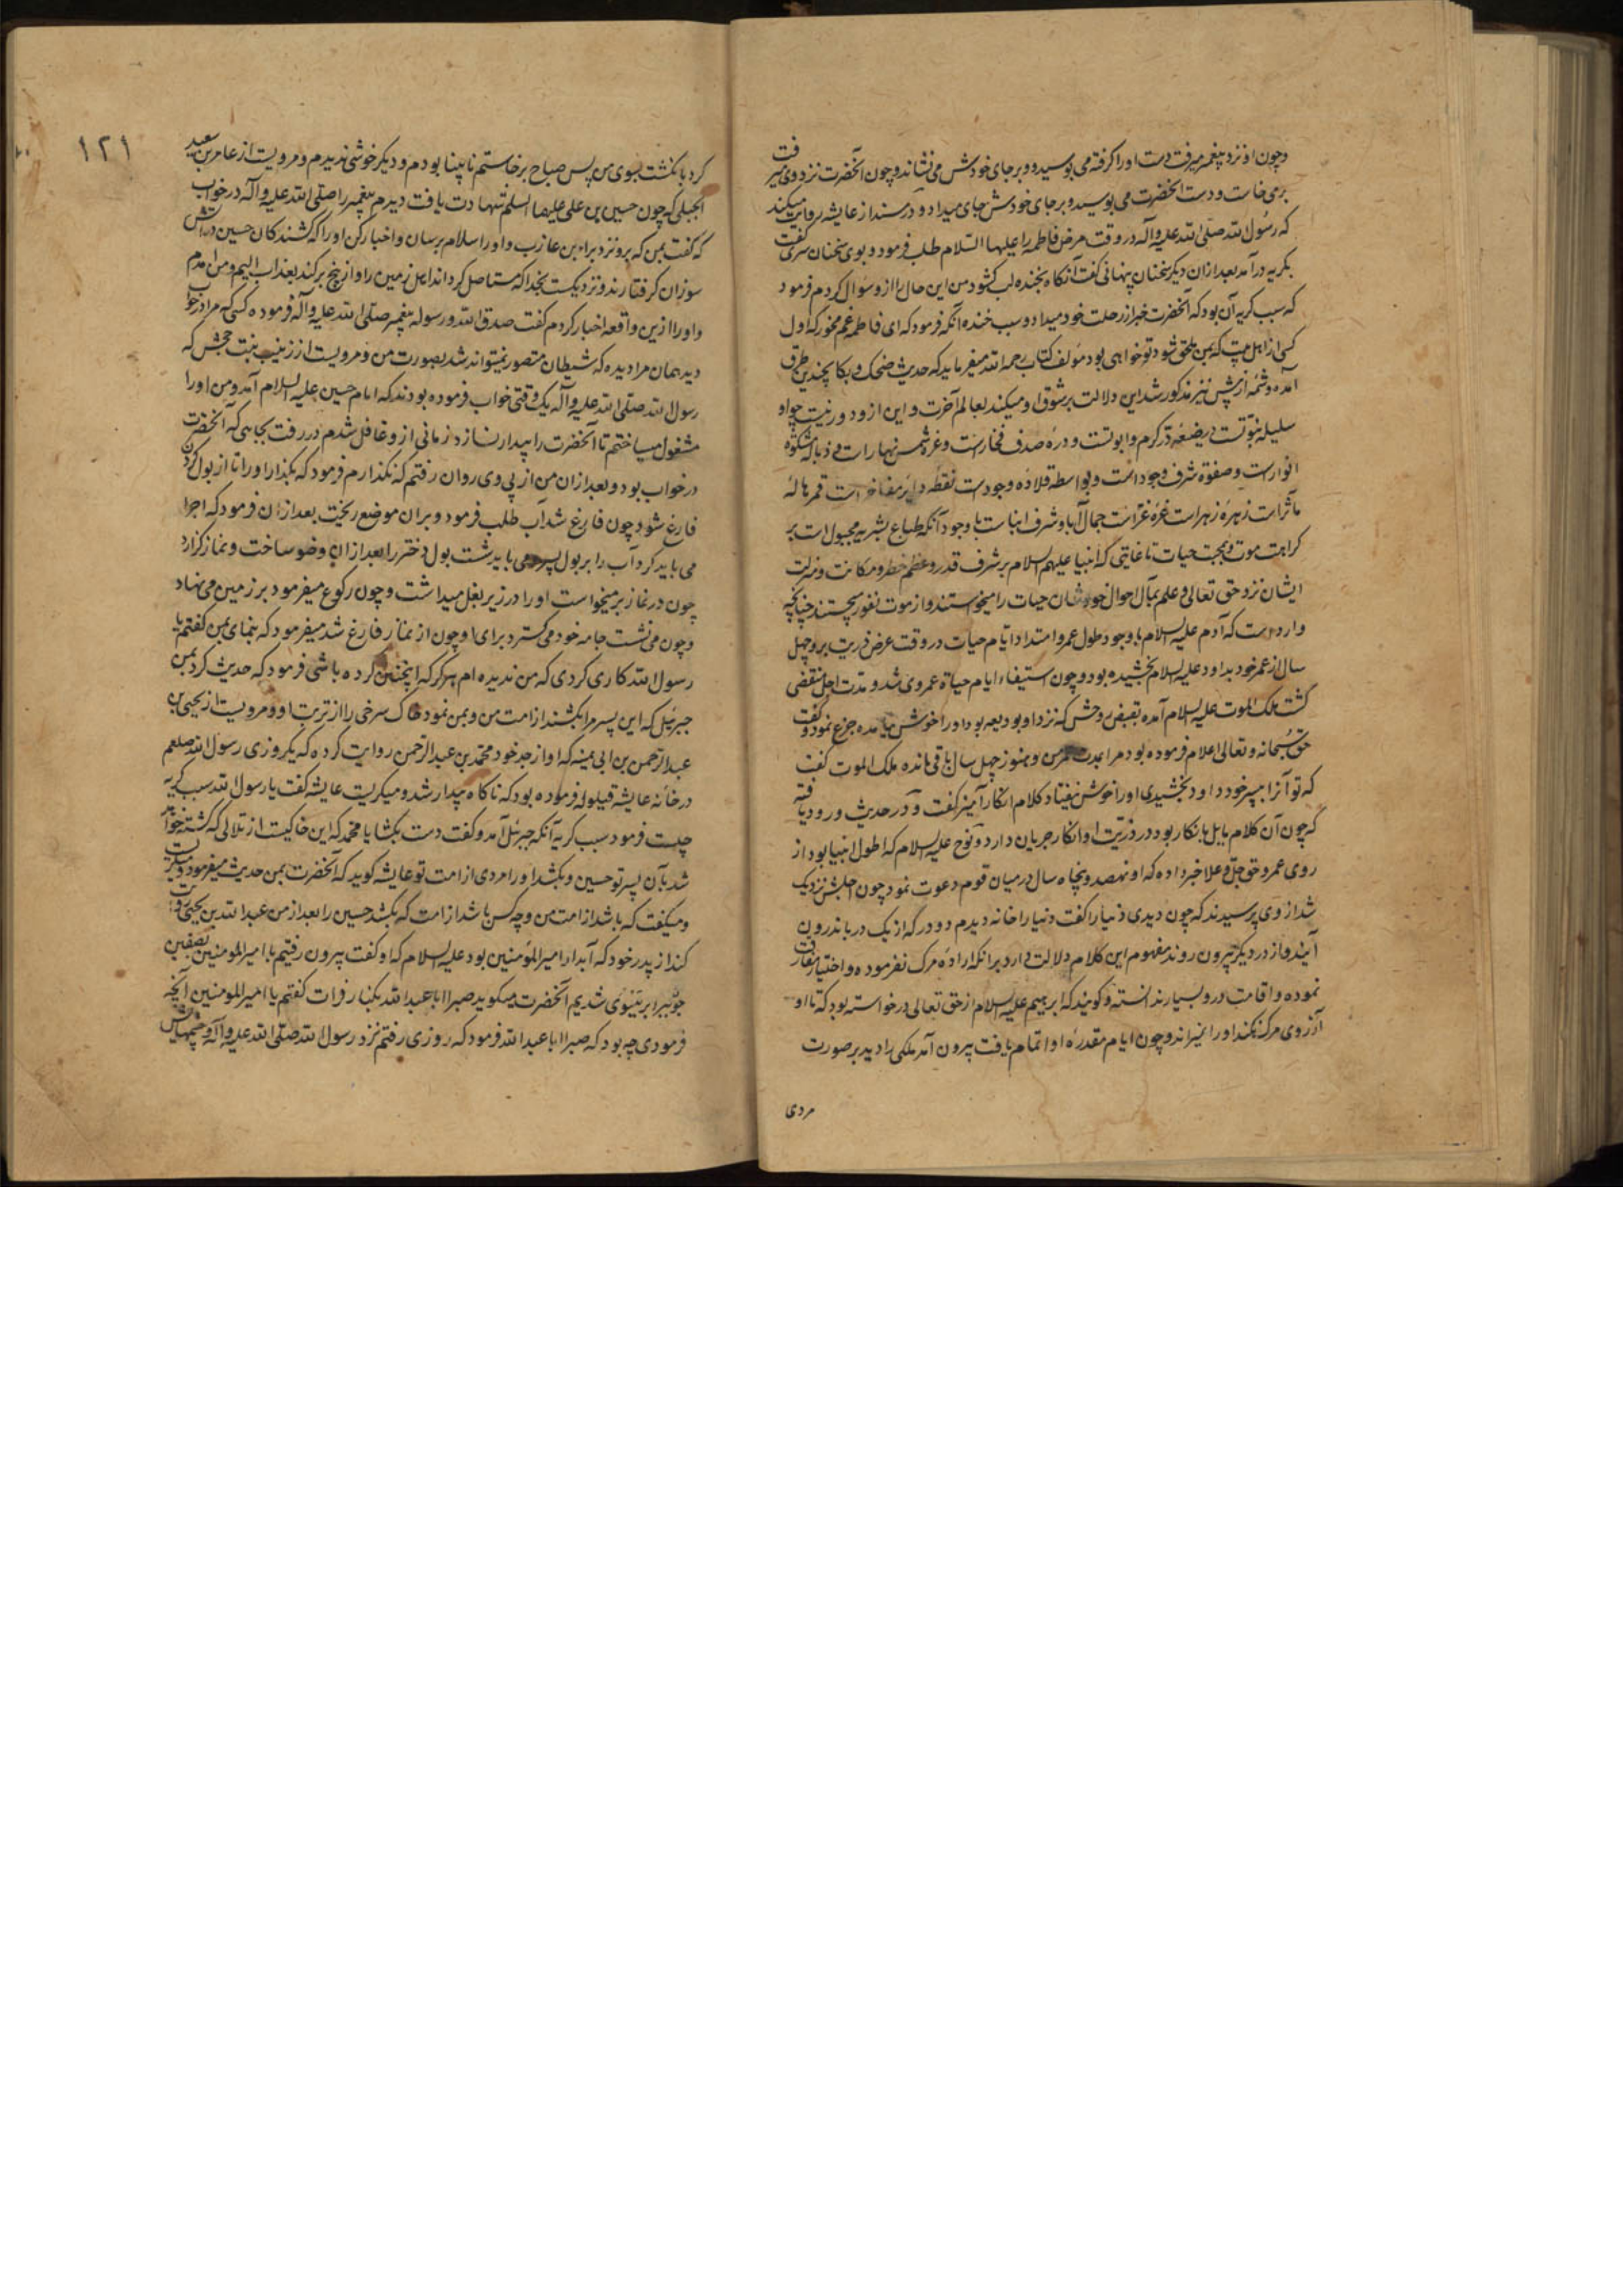 وچون او نزد پیغمبر میرفت دست او را کرفته می بوسید و بر جای خودش می نشاند وچون آنحضرت نزد وی میرفت
برمی خاست و دست آنحضرت می بوسید و بر جای خودش جای میداد و در مسند از عایشه روایت میکند
که رسول الله صلی الله علیه وآله در وقت مرض فاطمه را علیها السلام طلب فرمود و بوی سخنان سری گفت
بکریه درآمد بعد ازان دیکر سخنان پنهانی کفت آنکاه بخنده لب کشود من این حال را از و سؤال کردم فرمود
که سبب کریه آن بود که آنحضرت خبر از رحلت خود میداد و سبب خنده آنکه فرمود که ای فاطمه غم مخور که اول
کسی از اهل بیت که بمن ملحق شود تو خواهی بود مؤلف کتاب رحمه الله میفرماید که حدیث ضحک و بکا بچندین طرق
آمده و شمه از پیش نیز مذکور شد این دلالت بر شوق او میکند بعالم آخرت و این ازو دور نیست چه او
سلیله نبوتست و رضیعه در کرم و ابوتست و دره صدف فخارست و غره شمس نهارات و ذباله مشکوة
انوارست و صفوه شرف وجود است و واسطه قلاده وجودست نقطه دایره مفاخر است قمر هاله
مآثرات زهره زهرا است غره غراست جمال آبا و شرف ابناست با وجود آنکه طباع بشریه مجبول است بر
کراهت موت و محبت حیات تا غایتی که انبیا علیهم السلام بر شرف قدر و عظم خطر و مکانت و منزلت
ایشان نزد حق تعالی و علم بمآل احوال خودشان حیات را میخواستند و از موت نفور میجستند چنانچه
وارد است که آدم علیه السلام با وجود طول عمر و امتداد ایام حیات در وقت عرض ذریت برو چهل
سال از عمر خود بداود علیه السلام بخشیده بود و چون استیفاء ایام حیاة عمر وی شد و مدت اجل منقضی
کشت ملک الموت علیه السلام آمده بقبض روحش که نزد او بودیعه بود او را خوش نیامده جزع نمود و گفت
حق سبحانه و تعالی اعلام فرموده بود مرا بمدت عمر من و هنوز چهل سال باقی مانده ملک الموت کفت
که تو آنرا بپسر خود داود بخشیدی او را خوش نیفتاد کلام انکار آمیز کفت و در حدیث ورود یافته
که چون آن کلام مایل بانکار بود در ذریت او انکار جریان دارد و نوح علیه السلام که اطول انبیا بود از
روی عمر و حق جل و علا خبر داده که او نهصد و پنجاه سال در میان قوم دعوت نمود چون اجلش نزدیک
شد از وی پرسیدند که چون دیدی دنیا را کفت دنیا را خانه دیدم دو در که از یک در باندرون
آیند و از در دیکر بیرون روند مفهوم این کلام دلالت دارد بر انکه اراده مرک نفرموده و اختیار مفارقت
نموده و اقامت درو بسیار ندانسته و کویند که ابرهیم علیه السلام از حق تعالی درخواسته بود که تا او
آرزوی مرک نکند او را نمیراند و چون ایام مقدره او اتمام یافت بیرون آمد ملکی را دید بر صورت
مردی
۱۲۱
کرد بانکشت بسوی من پس صباح برخاستم نابینا بودم و دیکر خوشی ندیدم و مرویست از عامر بن سعید
البجلی که چون حسین بن علی علیهما السلم شهادت یافت دیدم پیغمبر را صلی الله علیه وآله در خواب
که کفت بمن که برو نزد براء بن عازب و او را سلام برسان و اخبار کن او را که کشندکان حسین در آتش
سوزان کرفتارند و نزدیکست بخدا که مستاصل کرداند اهل زمین را و از بیخ برکند بعذاب الیم و من آمدم
و او را ازین واقعه اخبار کردم کفت صدق الله و رسوله پیغمبر صلی الله علیه وآله فرموده کسی که مرا در خواب
دید همان مرا دیده که شیطان متصور نمیتواند شد بصورت من و مرویست از زینب بنت جحش که
رسول الله صلی الله علیه وآله یک وقتی خواب فرموده بودند که امام حسین علیه السلام آمد و من او را
مشغول میساختم تا آنحضرت را بیدار نسازد زمانی از و غافل شدم در رفت بجایی که آنحضرت
در خواب بود و بعد ازان من از پی وی روان رفتم که نکذارم فرمود که بکذار او را تا از بول کردن
فارغ شود چون فارغ شد آب طلب فرمود و بران موضع ریخت بعد ازان فرمود که اجرا
می باید کرد آب را بر بول پسر و می باید شست بول دختر را بعد ازان وضو ساخت و نماز کزارد
چون در نماز برمیخواست او را در زیر بغل میداشت و چون رکوع میفرمود بر زمین می نهاد
و چون می نشست جامه خود می کسترد برای او چون از نماز فارغ شد میفرمود که بنمای بمن کفتم یا
رسول الله کاری کردی که من ندیده ام هرکز که اینچنین کرده باشی فرمود که حدیث کرد بمن
جبرئیل که این پسر مرا بکشند از امت من و بمن نمود خاک سرخی را از تربت او و مرویست از یحیی بن
عبد الرحمن بن ابی لبیبه که او از جد خود محمد بن عبد الرحمن روایت کرده که یکروزی رسول الله صلعم
در خانه عایشه قیلوله فرموده بود که ناکاه بیدار شد و میکریست عایشه کفت یا رسول الله سبب کریه
چیست فرمود سبب کریه آنکه جبرئیل آمد و کفت دست بکشا یا محمد که این خاکیست از تلالی که کشته خواهد
شد بآن پسر تو حسین و بکشد او را مردی از امت تو عایشه کوید که آنحضرت بمن حدیث میفرمود و میکریست
و میکفت که باشد از امت من و چه کس باشد از امت که بکشد حسین را بعد از من عبد الله بن یحیی روایت
کند از پدر خود که آبدار امیر المؤمنین بود علیه السلام که او کفت بیرون رفتیم با امیر المومنین بصفین
چو برابر نینوی شدیم آنحضرت میکوید صبرا ابا عبد الله بکنار فرات کفتم یا امیر المومنین آنچه
فرمودی چه بود که صبرا ابا عبد الله فرمود که روزی رفتم نزد رسول الله صلی الله علیه وآله و چشمهایش